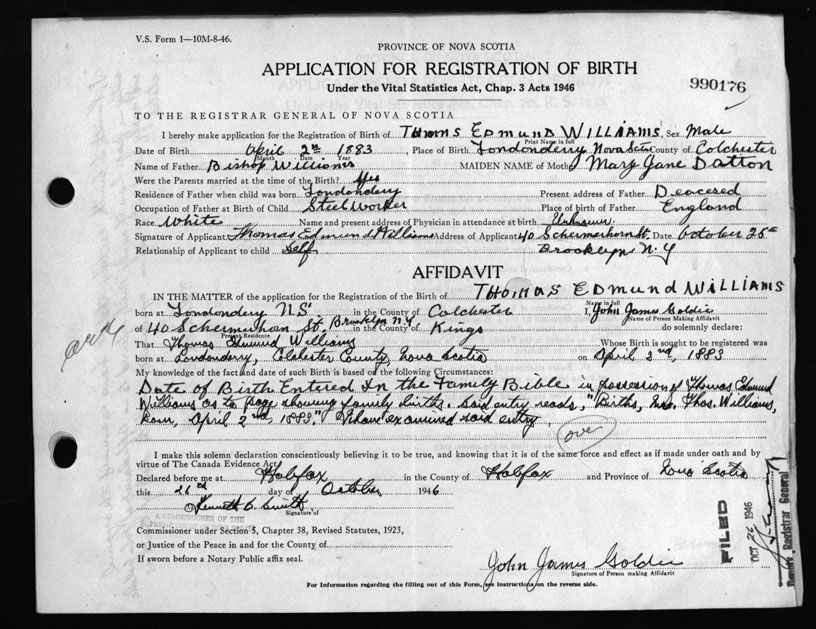 V.S. Form 1—10M-8-46.
PROVINCE OF NOVA SCOTIA
APPLICATION FOR REGISTRATION OF BIRTH
990176
Under the Vital Statistics Act, Chap. 3 Acts 1946
TO THE REGISTRAR GENERAL OF NOVA SCOTIA
I hereby make application for the Registration of Birth of THOMAS EDMUND WILLIAMS, Sex Male
Print Name in full
Date of Birth April 2nd 1883 Place of Birth Londonderry Nova Scotia County of Colchester
Month Date Year
Name of Father Bishop Williams MAIDEN NAME of Mother Mary Jane Datton
Were the Parents married at the time of the Birth? Yes
Residence of Father when child was born Londondery Present address of Father Deacesed
Occupation of Father at Birth of Child Steel Worker Place of birth of Father England
Race White Name and present address of Physician in attendance at birth Unknown
Signature of Applicant Thomas Edmund Williams Address of Applicant 40 Schermerhorn St. Date October 25th
Relationship of Applicant to child Self Brooklyn N.Y
AFFIDAVIT
IN THE MATTER of the application for the Registration of the Birth of THOMAS EDMUND WILLIAMS
Name in full
born at Londondery N.S. in the County of Colchester I, John James Goldie
Name of Person Making Affidavit
of 40 Schermerhorn St. Brooklyn N.Y in the County of Kings do solemnly declare:
Present Residence
That Thomas Edmund Williams Whose Birth is sought to be registered was
born at Londonderry, Colchester County, Nova Scotia on April 2nd, 1883
My knowledge of the fact and date of such Birth is based on the following Circumstances:
Date of Birth Entered In the Family Bible in possession of Thomas Edmund
Williams as to page showing family births. Said entry reads, "Births, Thos. Williams,
Born, April 2nd, 1883." I have examined said entry.
over
I make this solemn declaration conscientiously believing it to be true, and knowing that it is of the same force and effect as if made under oath and by
virtue of The Canada Evidence Act.
Declared before me at Halifax in the County of Halifax and Province of Nova Scotia
this 26th day of October 1946
Kenneth B. Smith
Signature of
A COMMISSIONER OF THE
Commissioner under Section 5, Chapter 38, Revised Statutes, 1923,
or Justice of the Peace in and for the County of
If sworn before a Notary Public affix seal.
John James Goldie
Signature of Person making Affidavit
For Information regarding the filling out of this Form, see instructions on the reverse side.
FILED
OCT 26 1946
Deputy Registrar General